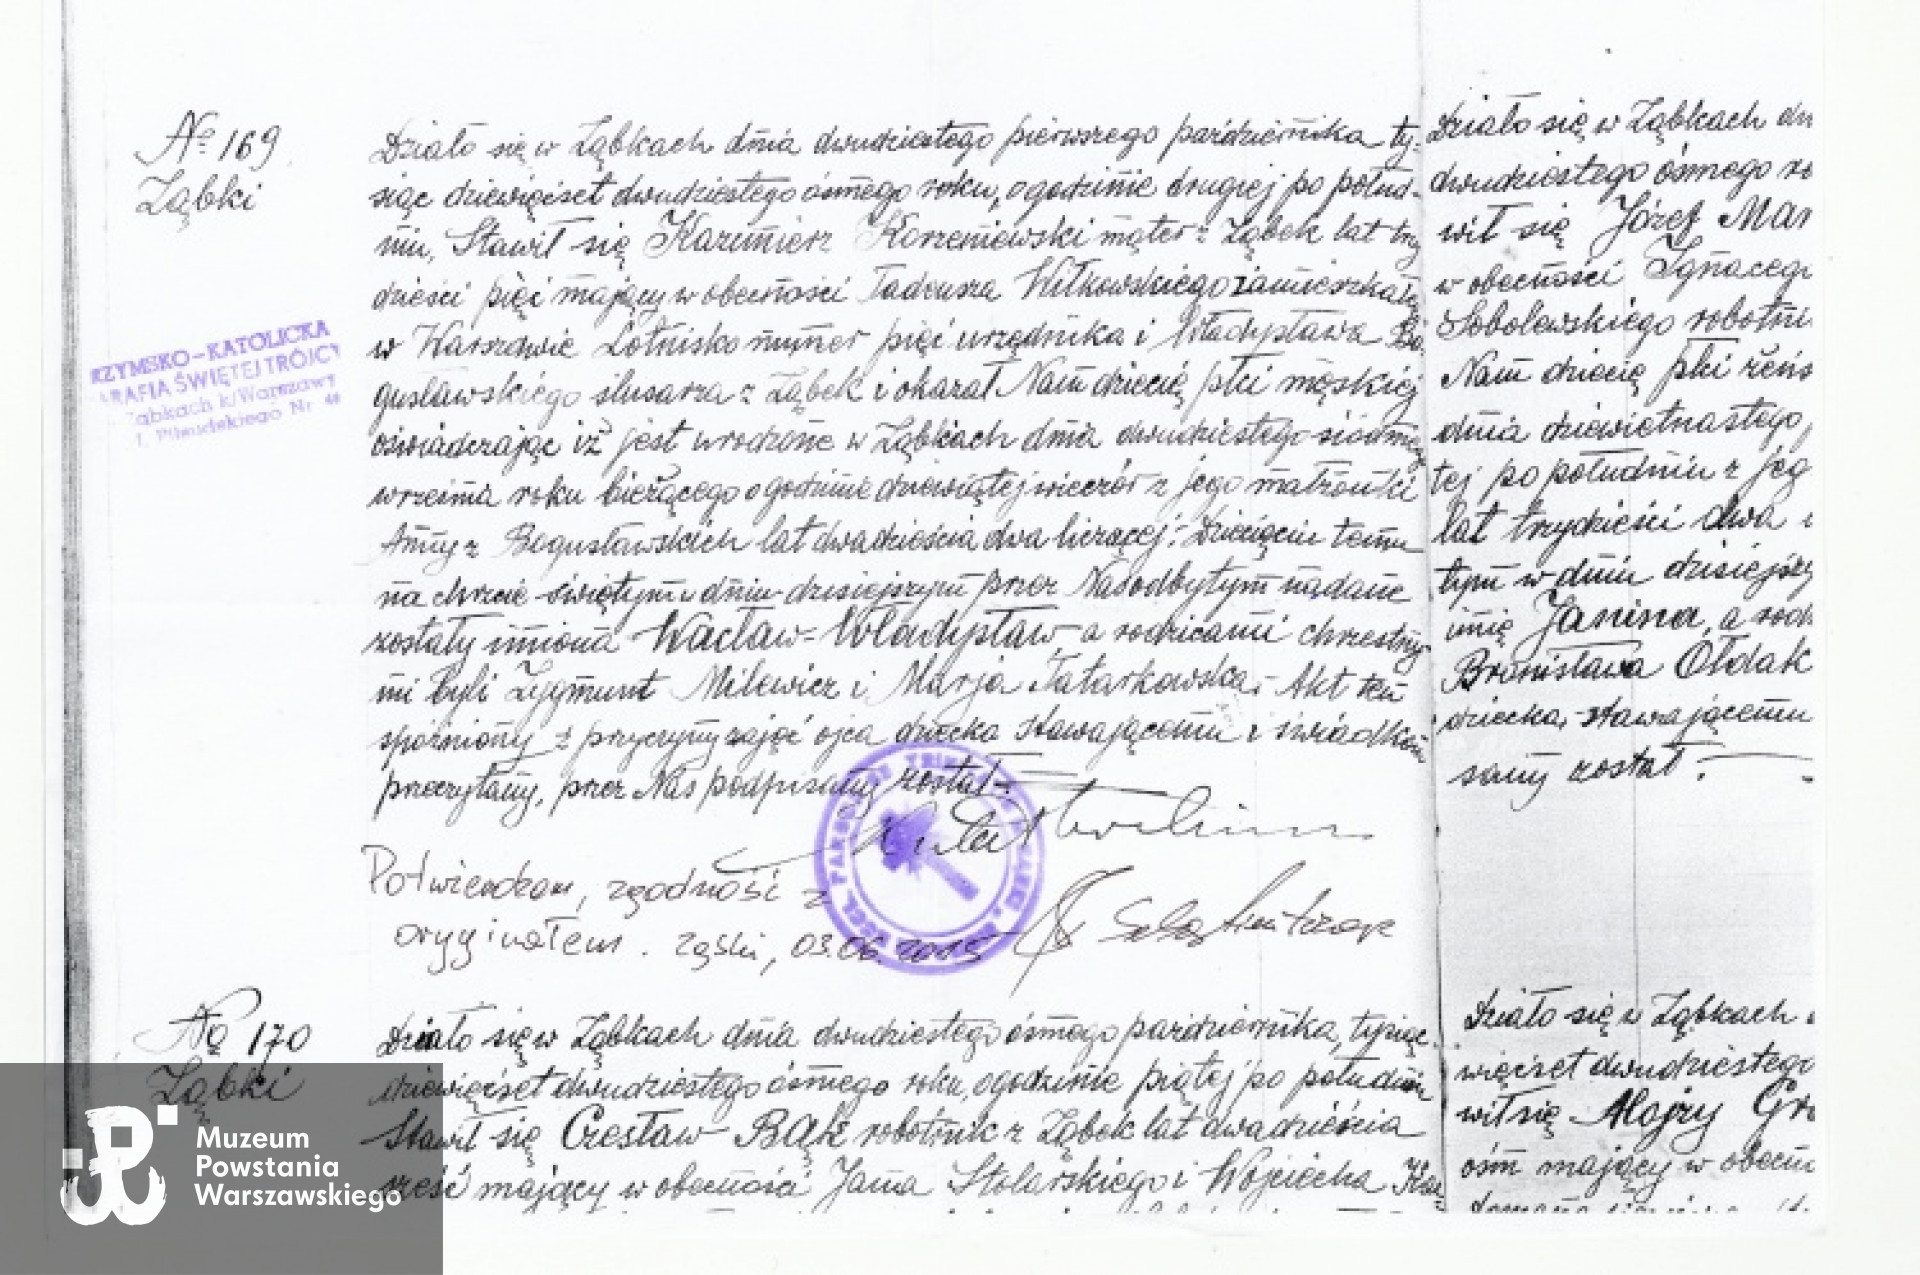 No 169
Ząbki
Działo się w Ząbkach dnia dwudziestego pierwszego października ty-
siąc dziewięćset dwudziestego ósmego roku, o godzinie drugiej po połud-
niu, Stawił się Kazimierz Korzeniewski z Ząbek lat trzy
dzieści pięć mający w obecności Tadeusza Witkowskiego zamieszkałego
w Warszawie Lotnisko numer pięć urzędnika i Władysława Bo-
gusławskiego ślusarza z Ząbek i okazał Nam dziecię płci męskiej
oświadczając iż jest urodzone w Ząbkach dnia dwudziestego siódmego
września roku bieżącego o godzinie dziewiątej wieczór z jego małżonki
Anny z Bogusławskich lat dwadzieścia dwa liczącej. Dziecięciu temu
na chrzcie świętym w dniu dzisiejszym przez Nas odbytym nadane
zostały imiona Wacław-Władysław, a rodzicami chrzestny-
mi byli Zygmunt Milewicz i Marja Tatarkowska. Akt ten
spóźniony z przyczyny zajęć ojca dziecka stawającemu i świadkom
przeczytany, przez Nas podpisany został.
Potwierdzam, zgodność z
oryginałem. Ząbki, 03.06.2015
RZYMSKO-KATOLICKA
PARAFIA ŚWIĘTEJ TRÓJCY
Ząbkach k/Warszawy
Piłsudskiego Nr
No 170
Ząbki
Działo się w Ząbkach dnia dwudziestego ósmego października, tysiąc
dziewięćset dwudziestego ósmego roku, o godzinie piątej po południu
Stawił się Czesław Bąk robotnik z Ząbek lat dwadzieścia
sześć mający w obecności Jana Stolarskiego i Wojciecha
Działo się w Ząbkach dn
dwudziestego ósmego ro
wił się Józef Mar
w obecności Ignacego
Sobolewskiego robotni
Nam dziecię płci żeńs
dnia dziewiętnastego
tej po południu z jeg
lat trzydzieści dwa
tym w dniu dzisiejszy
imię Janina, a rodz
Bronisława Ołdak
dziecka, stawającemu
sany został.
Działo się w Ząbkach
więćset dwudziestego
wił się Alojzy Gr
ośm mający w obecno
Muzeum
Powstania
Warszawskiego